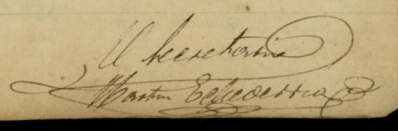 El Secretario
Martin Echeverria